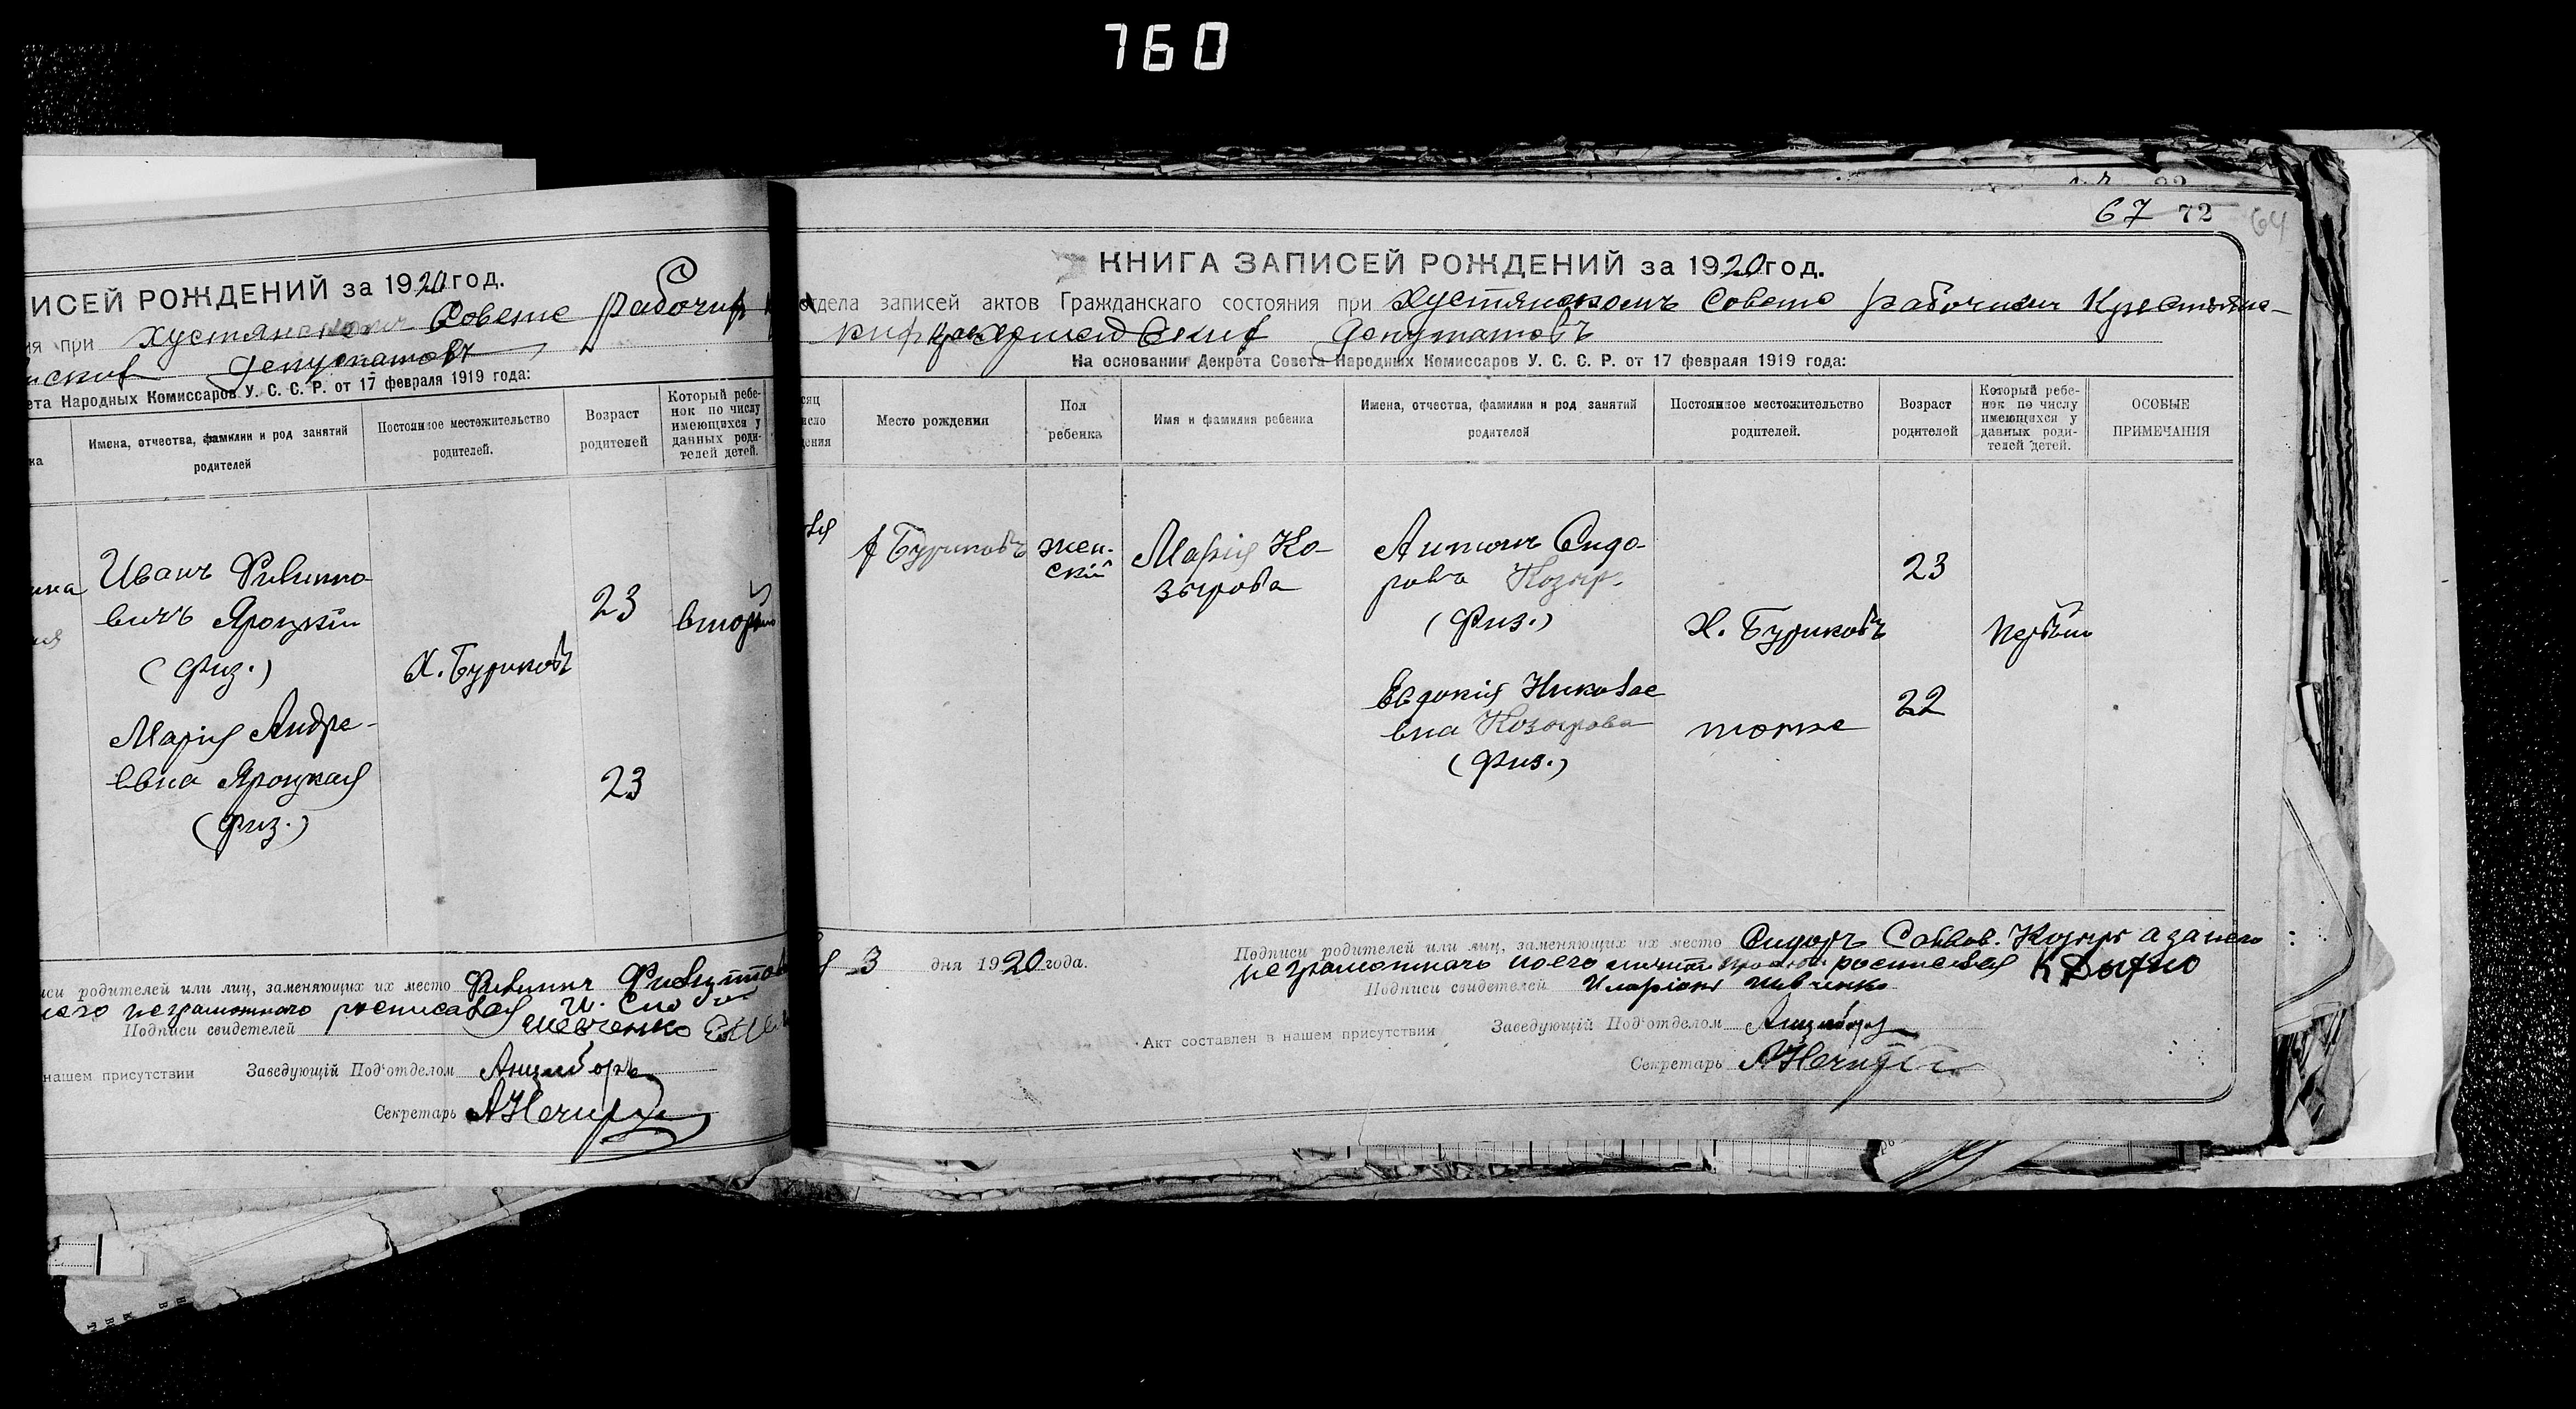 760
ИСЕЙ РОЖДЕНИЙ за 1920 год.
ия при Хустянском Совете Рабочих
ских Депутатовъ
ета Народных Комиссаров У. С. С. Р. от 17 февраля 1919 года:
ка
Имена, отчества, фамилии и род занятий
родителей
Постоянное местожительство
родителей.
Возраст
родителей
Который ребе-
нок по числу
имеющихся у
данных роди-
телей детей.
Иванъ Филиппо-
вичъ Яроцкій
(физ.)
Марія Андре-
евна Яроцкая
(физ.)
Х. Буриковъ
23
23
второй
иси родителей или лиц, заменяющих их место Филиппъ
него неграмотного росписался
Подписи свидетелей Шевченко
нашем присутствии Заведующій Под'отделом Анциборъ
Секретарь
67 72
64
КНИГА ЗАПИСЕЙ РОЖДЕНИЙ за 1920 год.
отдела записей актов Гражданскаго состояния при Хустянскомъ Совете Рабочихъ Крестьянс-
ких Депутатовъ
На основании Декрета Совета Народных Комиссаров У. С. С. Р. от 17 февраля 1919 года:
сяц
исло
дения
Место рождения
Пол
ребенка
Имя и фамилия ребенка
Имена, отчества, фамилии и род занятий
родителей
Постоянное местожительство
родителей.
Возраст
родителей
Который ребе-
нок по числу
имеющихся у
данных роди-
телей детей.
ОСОБЫЕ
ПРИМЕЧАНИЯ
Х Буриковъ
жен-
скій
Марія Ко-
зырова
Антонъ Сидо-
ровъ Козыр.
(физ.)
Евдокія Николае
вна Козырова
(физ.)
Х. Буриковъ
тоже
23
22
Первый
3 дня 1920 года.
Подписи родителей или лиц, заменяющих их место Сидоръ Козырь а за него
неграмотного по его личной просьбе росписался
Подписи свидетелей Иларіонъ Шевченко
Акт составлен в нашем присутствии Заведующій Под'отделом Анциборъ
Секретарь